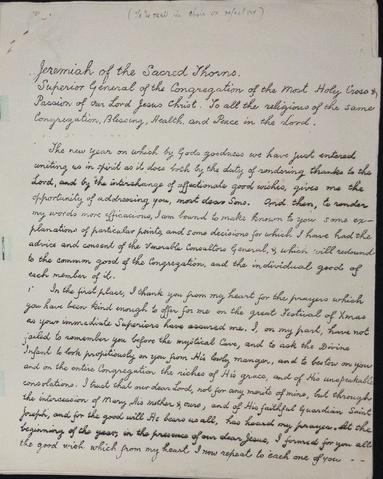 (To be read in choir or refectory)
Jeremiah of the Sacred Thorns.
Superior General of the Congregation of the Most Holy Cross &
Passion of our Lord Jesus Christ. To all the religious of the same
Congregation, Blessing, Health and Peace in the Lord.
The new year on which by Gods goodness we have just entered
uniting us in spirit as it does both by the duty of rendering thanks to the
Lord, and by the interchange of affectionate good wishes, gives me the
opportunity of addressing you, most dear Sons. And then, to render
my words more efficacious, I am bound to make known to you some ex-
planations of particular points, and some decisions for which I have had the
advice and consent of the Venerable Consultors General, & which will redound
to the common good of the Congregation, and the individual good of
each member of it.
1° In the first place, I thank you from my heart for the prayers which
you have been kind enough to offer for me on the great Festival of Xmas
as your immediate Superiors have assured me. I, on my part, have not
failed to remember you before the mystical Cave, and to ask the Divine
Infant to look propitiously on you from His lowly manger, and to bestow on you
and on the entire Congregation the riches of His grace, and of His unspeakable
consolations. I trust that our dear Lord, not for any merit of mine, but through
the intercession of Mary, His mother & ours, and of His faithful Guardian Saint
Joseph, and for the good will He bears us all, has heard my prayer. At the
beginning of the year, in the presence of our dear Jesus, I formed for you all
the good wish which from my heart I now repeat to each one of you - -